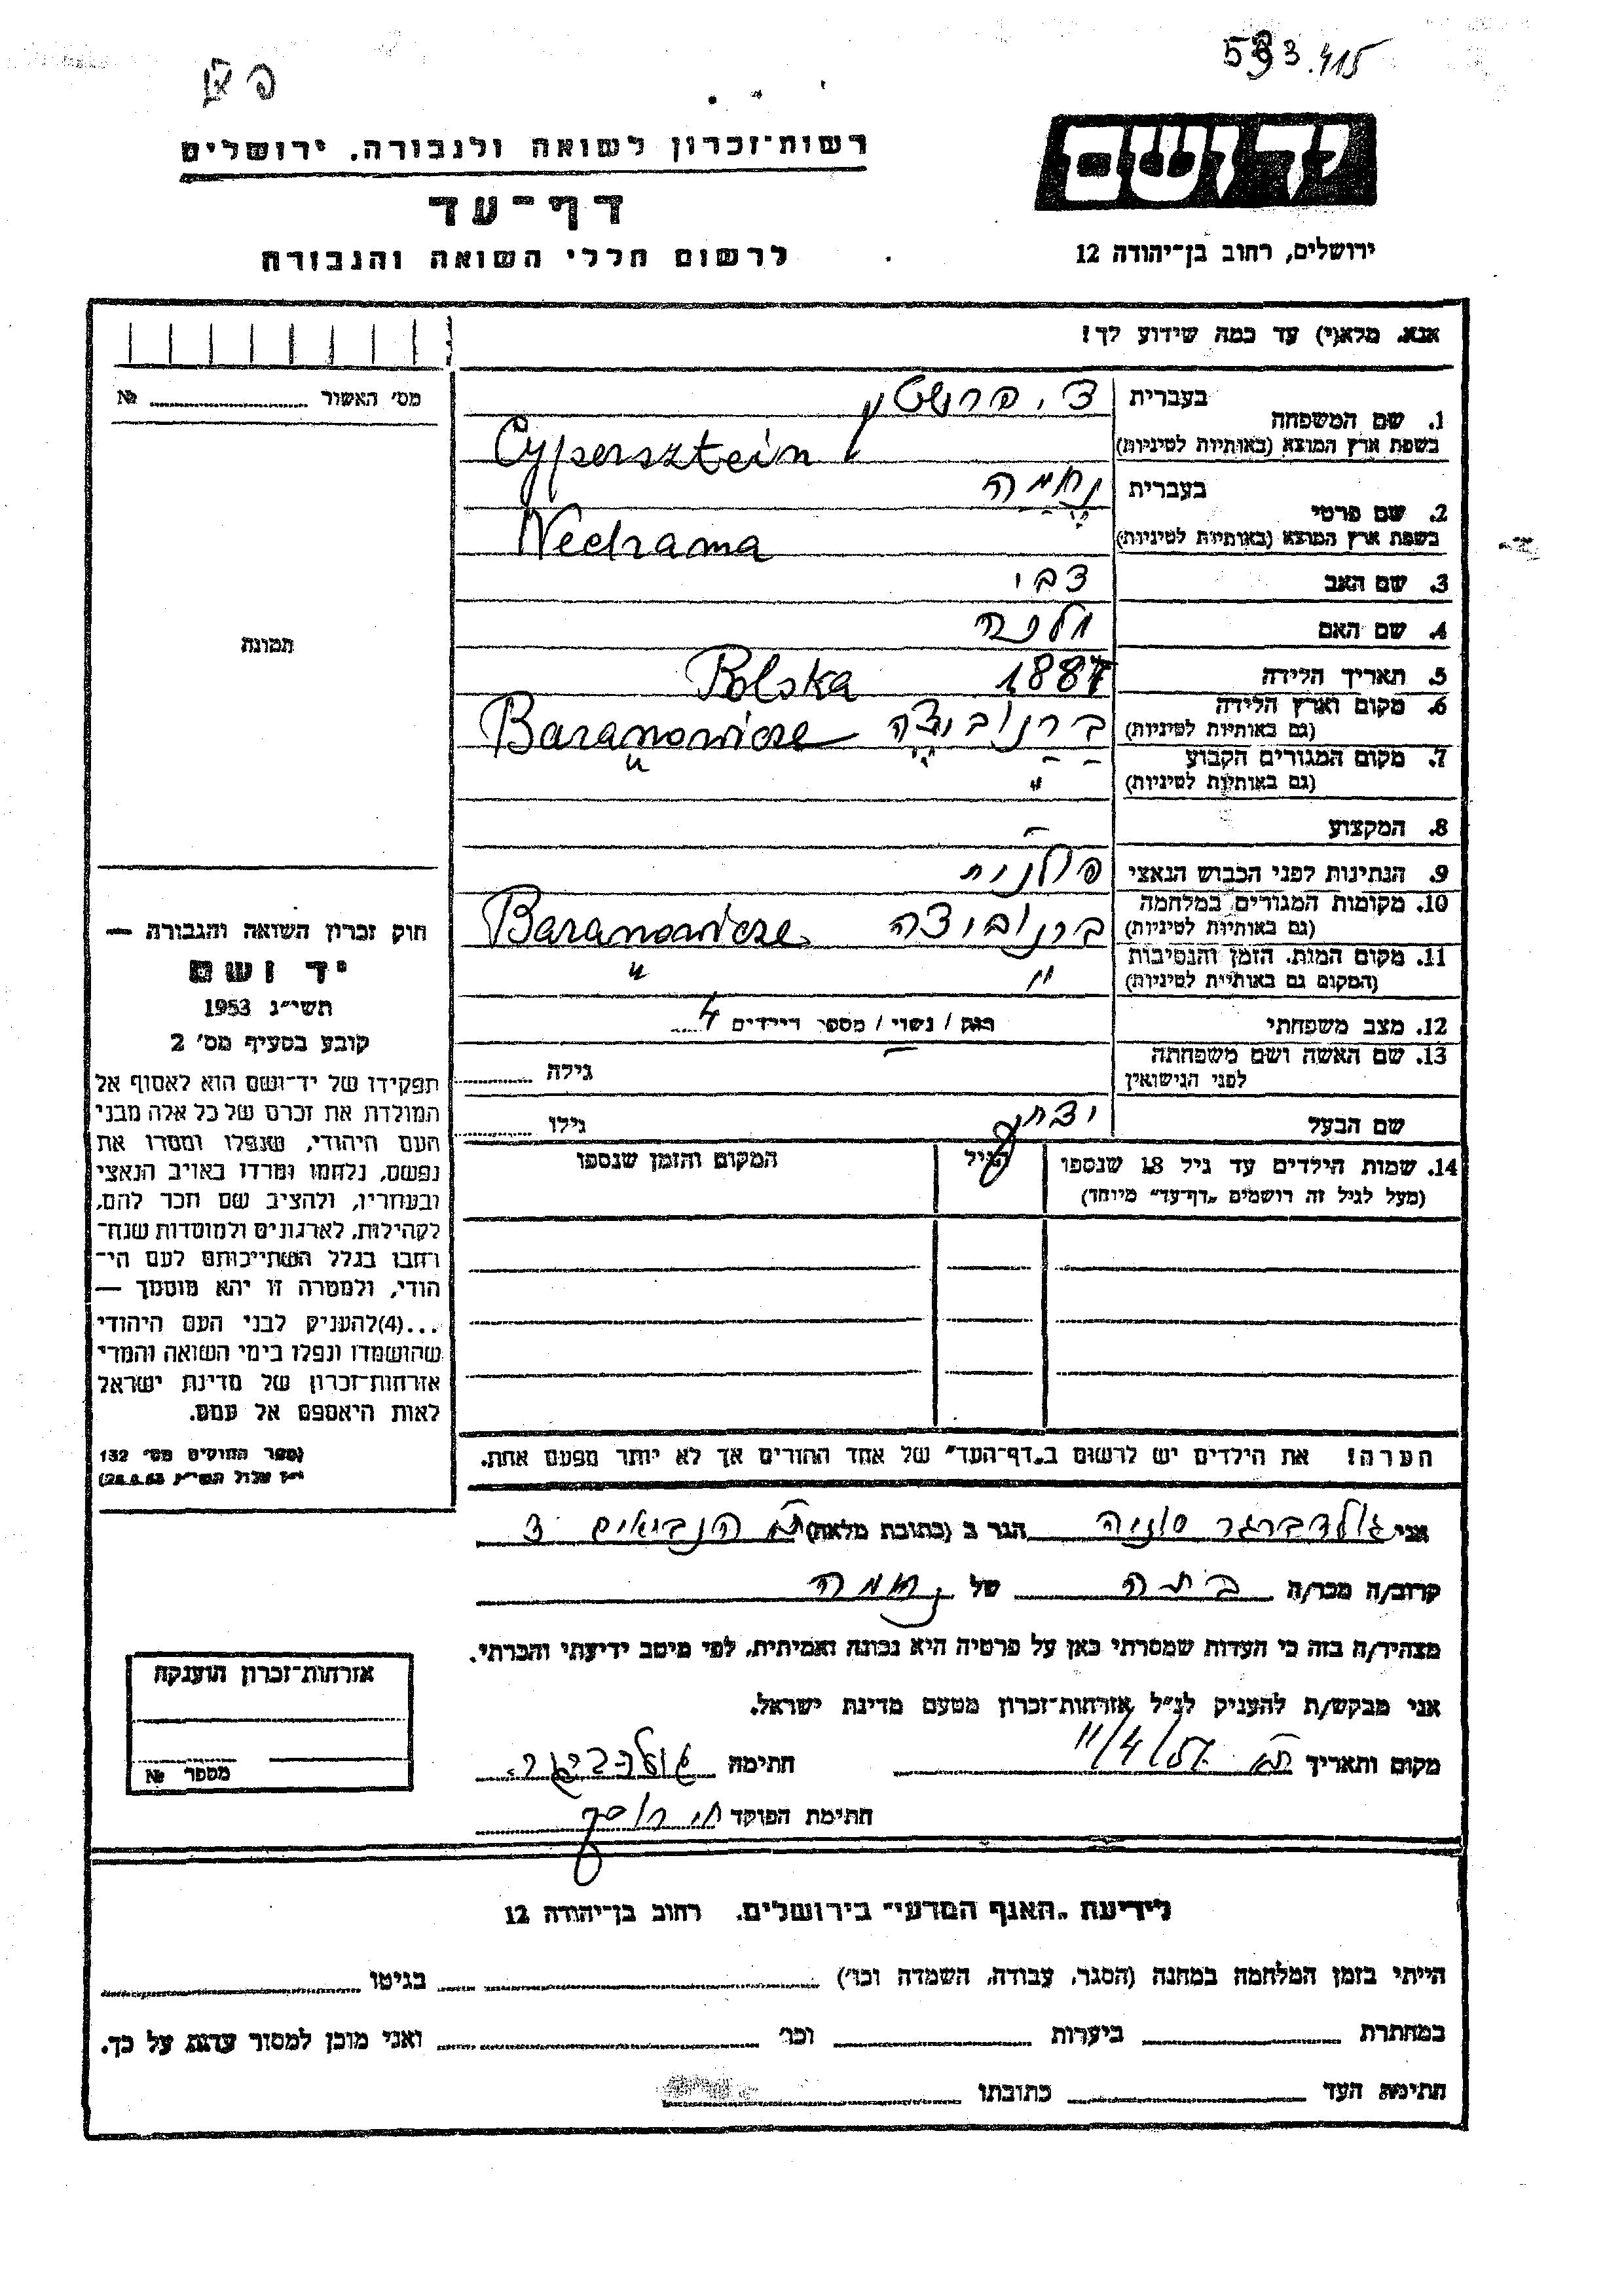 פ צ
533.415
יד ושם
רשות־זכרון לשואה ולגבורה, ירושלים
דף־עד
לרשום חללי השואה והגבורה
ירושלים, רחוב בן־יהודה 12
אנא, מלא(י) עד כמה שידוע לך!
מס' האשור № 
1. שם המשפחה בעברית ציפרשטין
בשפת ארץ המוצא (באותיות לטיניות) Cypersztein
2. שם פרטי בעברית נחמה
בשפת ארץ המוצא (באותיות לטיניות) Nechama
3. שם האב צבי
4. שם האם מלכה
5. תאריך הלידה 1887 Polska
6. מקום וארץ הלידה (גם באותיות לטיניות) ברנוביצה Baranowicze
7. מקום המגורים הקבוע (גם באותיות לטיניות) " "
8. המקצוע –
9. הנתינות לפני הכבוש הנאצי פולנית
10. מקומות המגורים במלחמה (גם באותיות לטיניות) ברנוביצה Baranowicze
11. מקום המות, הזמן והנסיבות (המקום גם באותיות לטיניות) " "
12. מצב משפחתי רווק / נשוי / מספר הילדים 4
13. שם האשה ושם משפחתה לפני הנישואין – גילה
שם הבעל יצחק גילו
14. שמות הילדים עד גיל 18 שנספו הגיל המקום והזמן שנספו
(מעל לגיל זה רושמים „דף־עד" מיוחד)
תמונה
חוק זכרון השואה והגבורה —
יד ושם
תשי"ג 1953
קובע בסעיף מס' 2
תפקידו של יד־ושם הוא לאסוף אל
המולדת את זכרם של כל אלה מבני
העם היהודי, שנפלו ומסרו את
נפשם, נלחמו ומרדו באויב הנאצי
ובעוזריו, ולהציב שם וזכר להם,
לקהילות, לארגונים ולמוסדות שנח־
רבו בגלל השתייכותם לעם הי־
הודי, ולמטרה זו יהא מוסמך —
...(4)להעניק לבני העם היהודי
שהושמדו ונפלו בימי השואה והמרי
אזרחות־זכרון של מדינת ישראל
לאות היאספם אל עמם.
(ספר החוקים מס' 132
י"ז אלול תשי"ג 28.8.53)
הערה! את הילדים יש לרשום ב„דף־העד" של אחד ההורים אך לא יותר מפעם אחת.
אני גולדברגר סוניה הגר ב (כתובת מלאה) הנביאים
קרוב/ה מכר/ה בתה של נחמה
מצהיר/ה בזה כי העדות שמסרתי כאן על פרטיה היא נכונה ואמיתית, לפי מיטב ידיעתי והכרתי.
אני מבקש/ת להעניק לנ"ל אזרחות־זכרון מטעם מדינת ישראל.
מקום ותאריך 11/4/57 חתימה גולדברגר
חתימת הפוקד
אזרחות־זכרון הוענקה
מספר №
לידיעת „האגף המדעי" בירושלים, רחוב בן־יהודה 12
הייתי בזמן המלחמה במחנה (הסגר, עבודה, השמדה וכו') בגיטו
במחתרת ביערות וכו' ואני מוכן למסור עדות על כך.
חתימת העד כתובתו